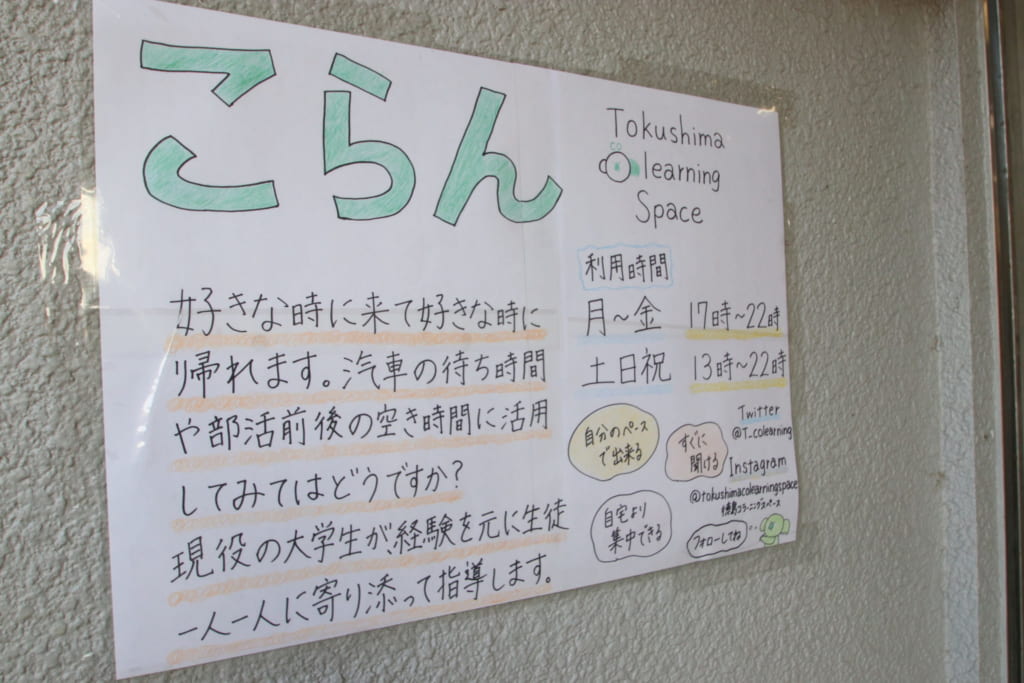 こらん
好きな時に来て好きな時に
帰れます。汽車の待ち時間
や部活前後の空き時間に活用
してみてはどうですか？
現役の大学生が、経験を元に生徒
一人一人に寄り添って指導します。
Tokushima
co
learning
Space
利用時間
月～金 17時～22時
土日祝 13時～22時
自分のペース
で出来る
すぐに
聞ける
自宅より
集中できる
Twitter
@T_colearning
Instagram
@tokushimacolearningspace
徳島コラーニングスペース
フォローしてね